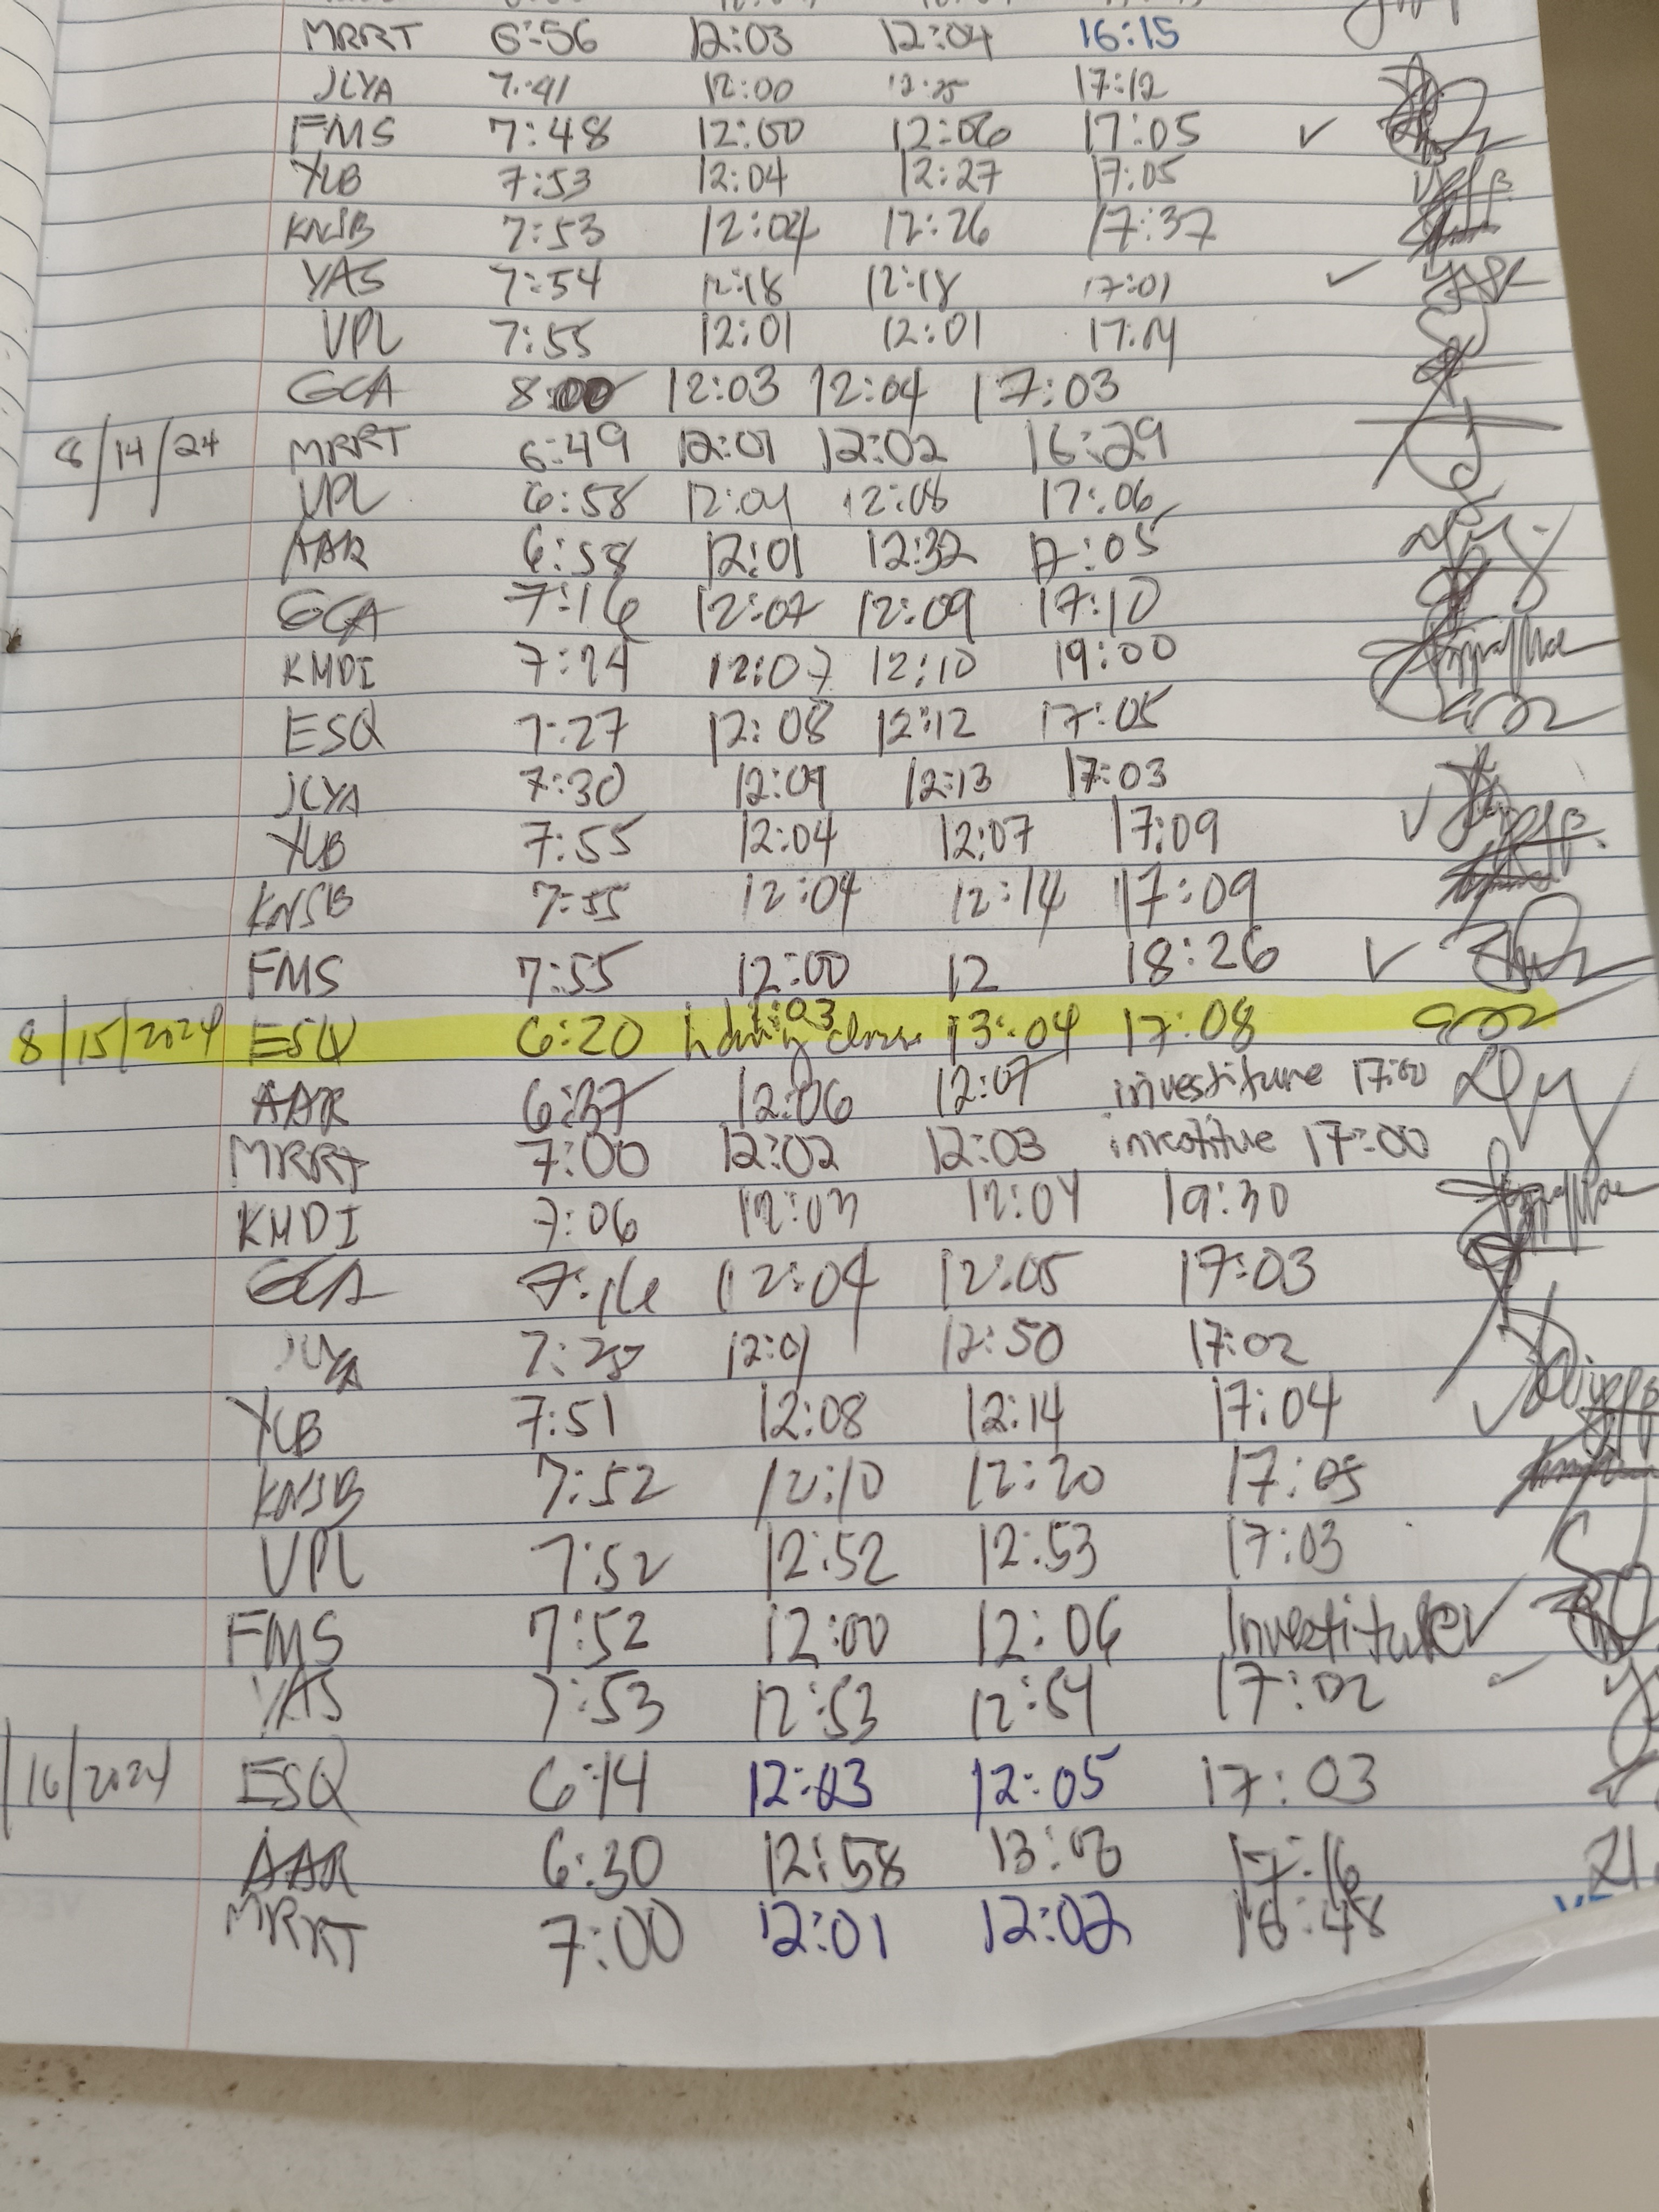 MRRT 6:56 12:03 12:04 16:15
JCYA 7:41 12:00 12:25 17:12
FMS 7:48 12:00 12:06 17:05 ✓
YLB 7:53 12:04 12:27 17:05
KNSB 7:53 12:04 12:26 17:37
YAS 7:54 12:18 12:18 17:01 ✓
VPL 7:55 12:01 12:01
GCA 8:00 12:03 12:04 17:03
8/14/24 MRRT 6:49 12:01 12:02 16:29
VPL 6:58 12:08 17:06
AAR 6:58 12:01 12:32 17:05
GCA 7:16 12:07 12:09 17:10
KMDI 12:07 12:10 19:00
ESQ 7:27 12:08 12:12 17:05
JCYA 7:30 12:09 12:13 17:03
YLB 7:55 12:04 12:07 17:09
KNSB 7:55 12:04 12:14 17:09
FMS 7:55 12:00 12 18:26 ✓
8/15/2024 ESQ 6:20 13:04 17:08
AAR 6:37 12:06 12:07 investiture 17:00
MRRT 7:00 12:02 12:03 investitue 17:00
KMDI 7:06 12:03 12:04 19:30
GCA 7:16 12:04 12:05 17:03
JCYA 12:01 12:50 17:02
YLB 7:51 12:08 12:14 17:04
KNSB 7:52 12:10 12:20 17:05
VPL 7:52 12:52 12:53 17:03
FMS 7:52 12:00 12:06 Investiture ✓
YAS 7:53 12:53 12:54 17:02
/16/2024 ESQ 6:14 12:03 12:05 17:03
AAR 6:30 12:58 17:16
MRRT 7:00 12:01 12:02 16:48